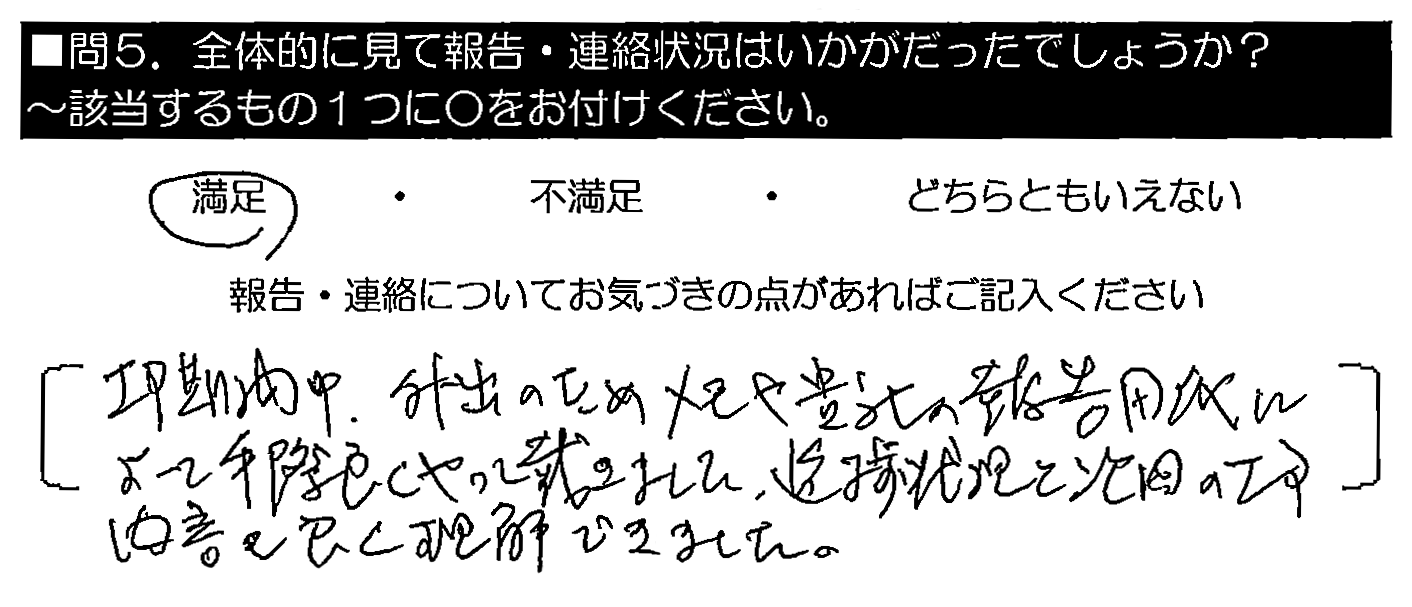 ■問5．全体的に見て報告・連絡状況はいかがだったでしょうか？
～該当するもの1つに〇をお付けください。
満足 ・ 不満足 ・ どちらともいえない
報告・連絡についてお気づきの点があればご記入ください
工期内中、外出のため メモや貴社の報告用紙に
よって手際良くやって戴きました、進捗状況と次回の工事
内容も良く理解できました。